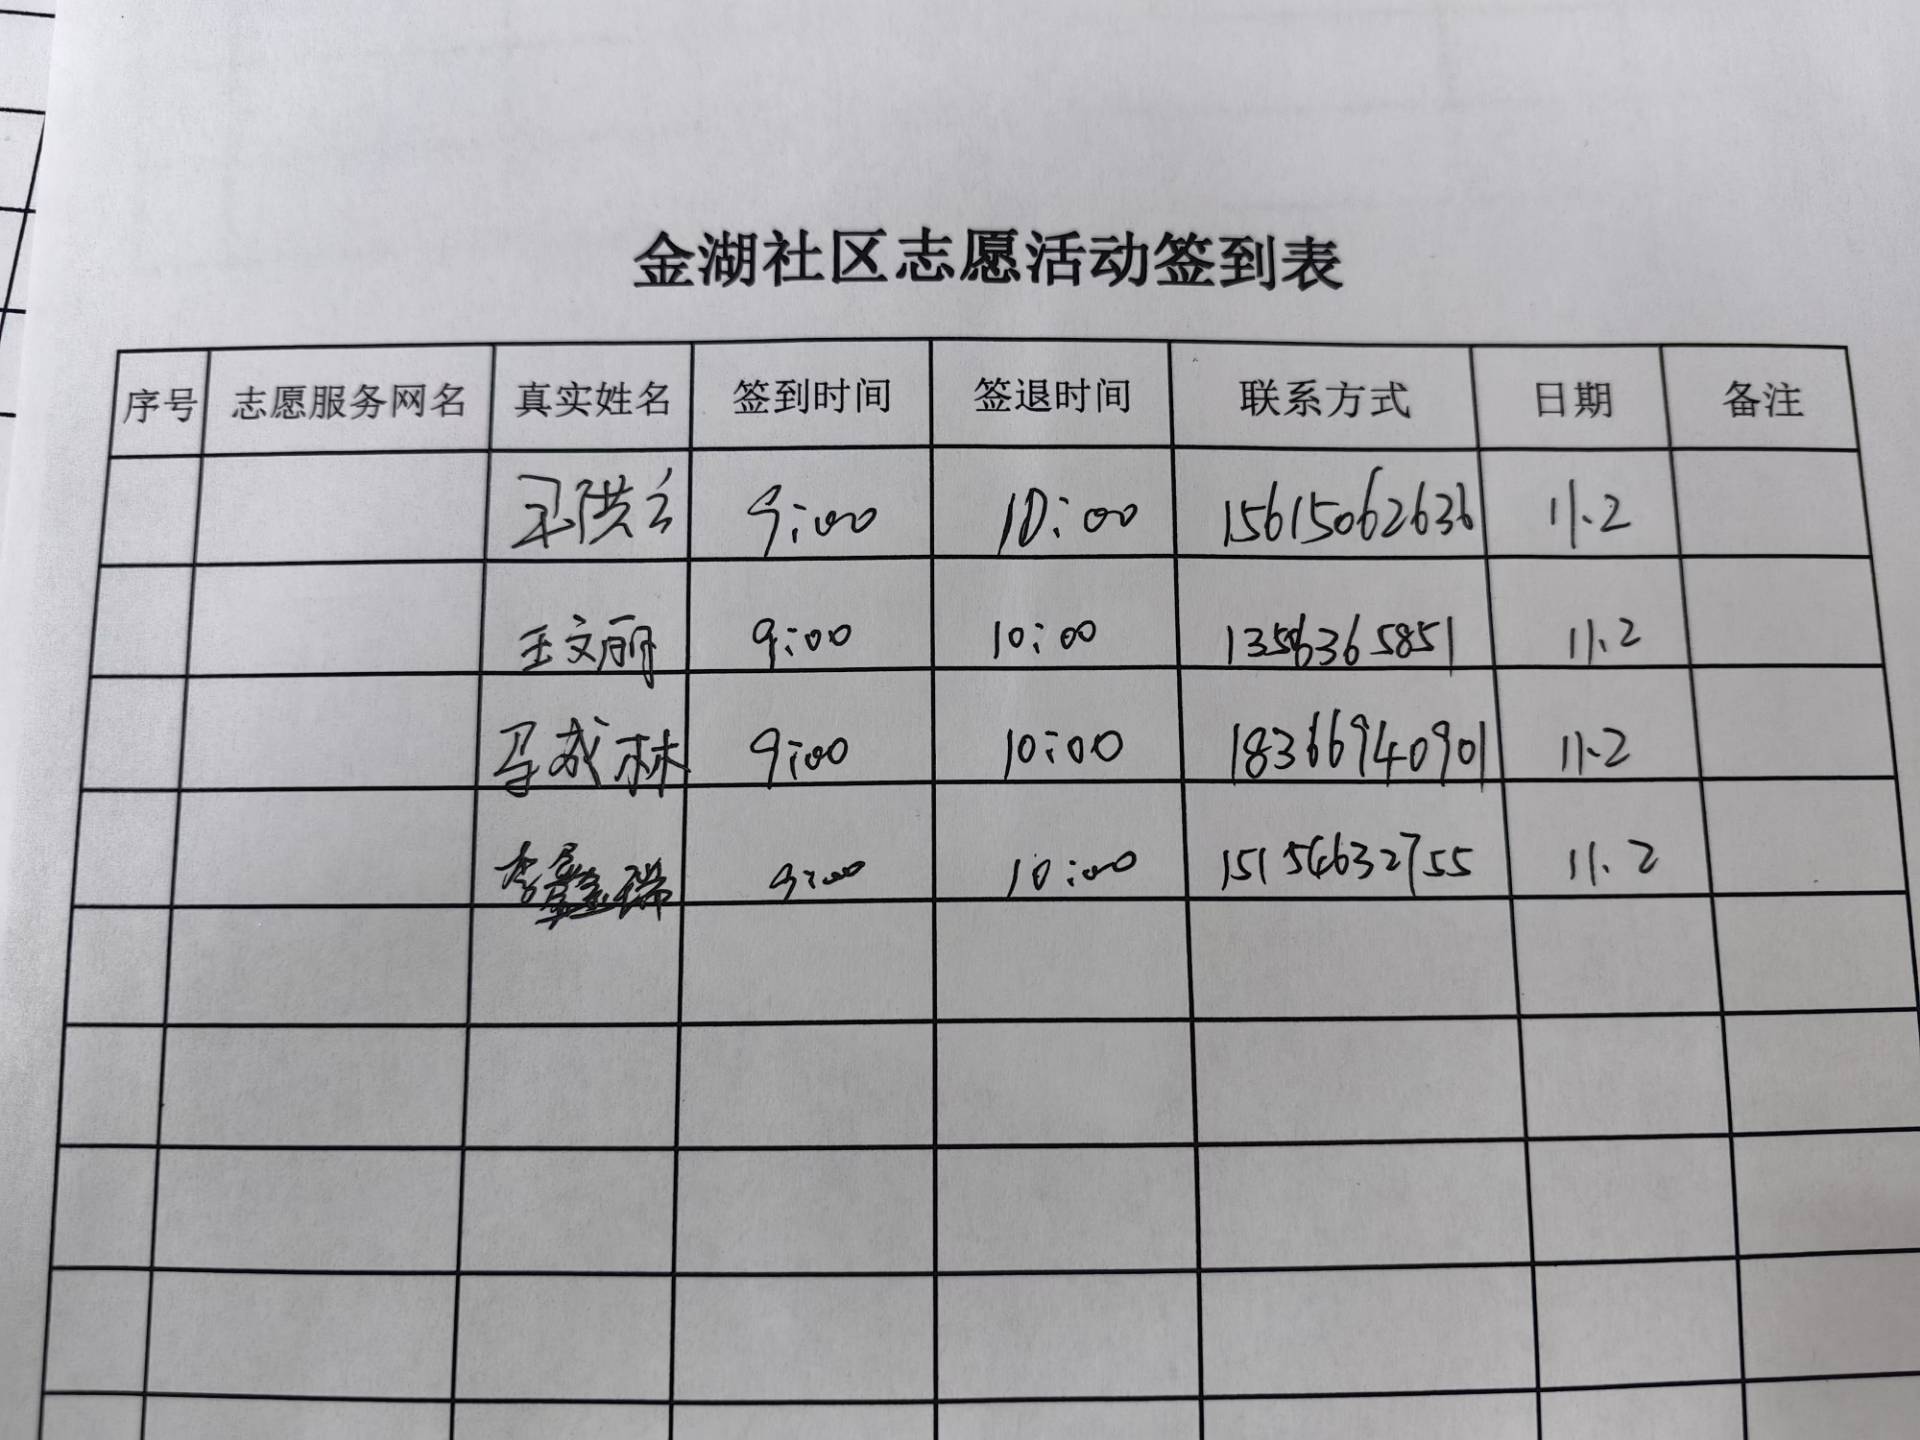 金湖社区志愿活动签到表
序号 志愿服务网名 真实姓名 签到时间 签退时间 联系方式 日期 备注
9:00 10:00 15615062636 11.2
王文丽 9:00 10:00 13563365851 11.2
马成林 9:00 10:00 18366940901 11.2
李 瑞 9:00 10:00 15154632755 11.2